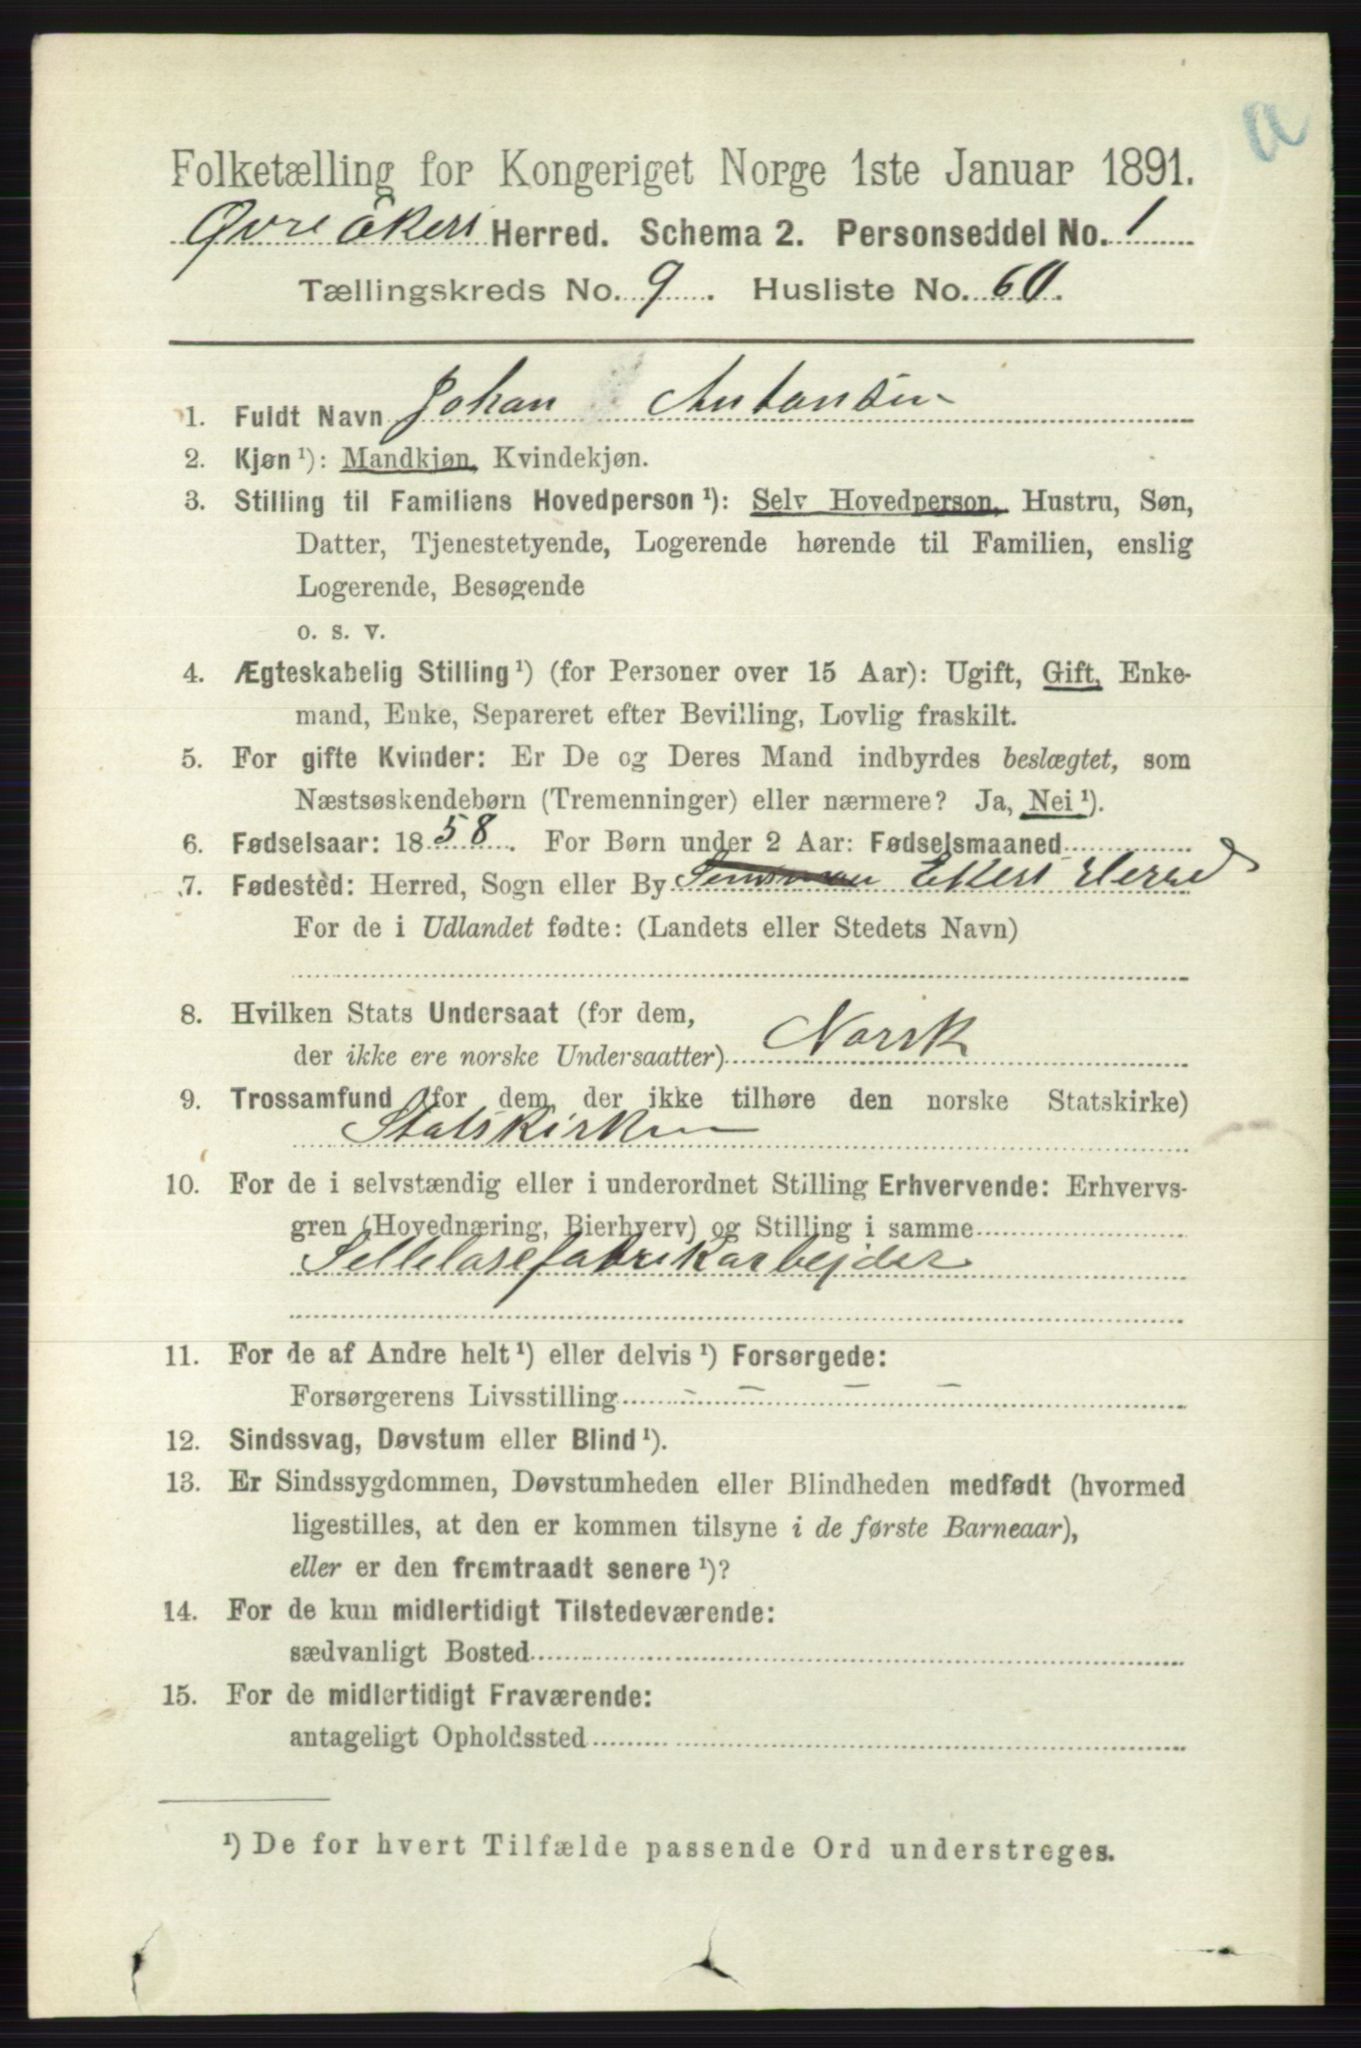 a
Folketælling for Kongeriget Norge 1ste Januar 1891.
Øvre Ekers Herred. Schema 2. Personseddel No. 1
Tællingskreds No. 9. Husliste No. 60.
1. Fuldt Navn Johan Antonsen
2. Kjøn ¹): Mandkjøn, Kvindekjøn.
3. Stilling til Familiens Hovedperson ¹): Selv Hovedperson, Hustru, Søn,
Datter, Tjenestetyende, Logerende hørende til Familien, enslig
Logerende, Besøgende
o. s. v.
4. Ægteskabelig Stilling ¹) (for Personer over 15 Aar): Ugift, Gift, Enke-
mand, Enke, Separeret efter Bevilling, Lovlig fraskilt.
5. For gifte Kvinder: Er De og Deres Mand indbyrdes beslægtet, som
Næstsøskendebørn (Tremenninger) eller nærmere? Ja, Nei ¹).
6. Fødselsaar: 1858. For Børn under 2 Aar: Fødselsmaaned
7. Fødested: Herred, Sogn eller By Ekers Herred
For de i Udlandet fødte: (Landets eller Stedets Navn)
8. Hvilken Stats Undersaat (for dem,
der ikke ere norske Undersaatter) Norsk
9. Trossamfund (for dem, der ikke tilhøre den norske Statskirke)
Statskirken
10. For de i selvstændig eller i underordnet Stilling Erhvervende: Erhvervs-
gren (Hovednæring, Bierhverv) og Stilling i samme
Sellelosefabrikarbejder
11. For de af Andre helt ¹) eller delvis ¹) Forsørgede:
Forsørgerens Livsstilling – – – –
12. Sindssvag, Døvstum eller Blind ¹).
13. Er Sindssygdommen, Døvstumheden eller Blindheden medfødt (hvormed
ligestilles, at den er kommen tilsyne i de første Barneaar),
eller er den fremtraadt senere ¹)?
14. For de kun midlertidigt Tilstedeværende:
sædvanligt Bosted
15. For de midlertidigt Fraværende:
antageligt Opholdssted
¹) De for hvert Tilfælde passende Ord understreges.